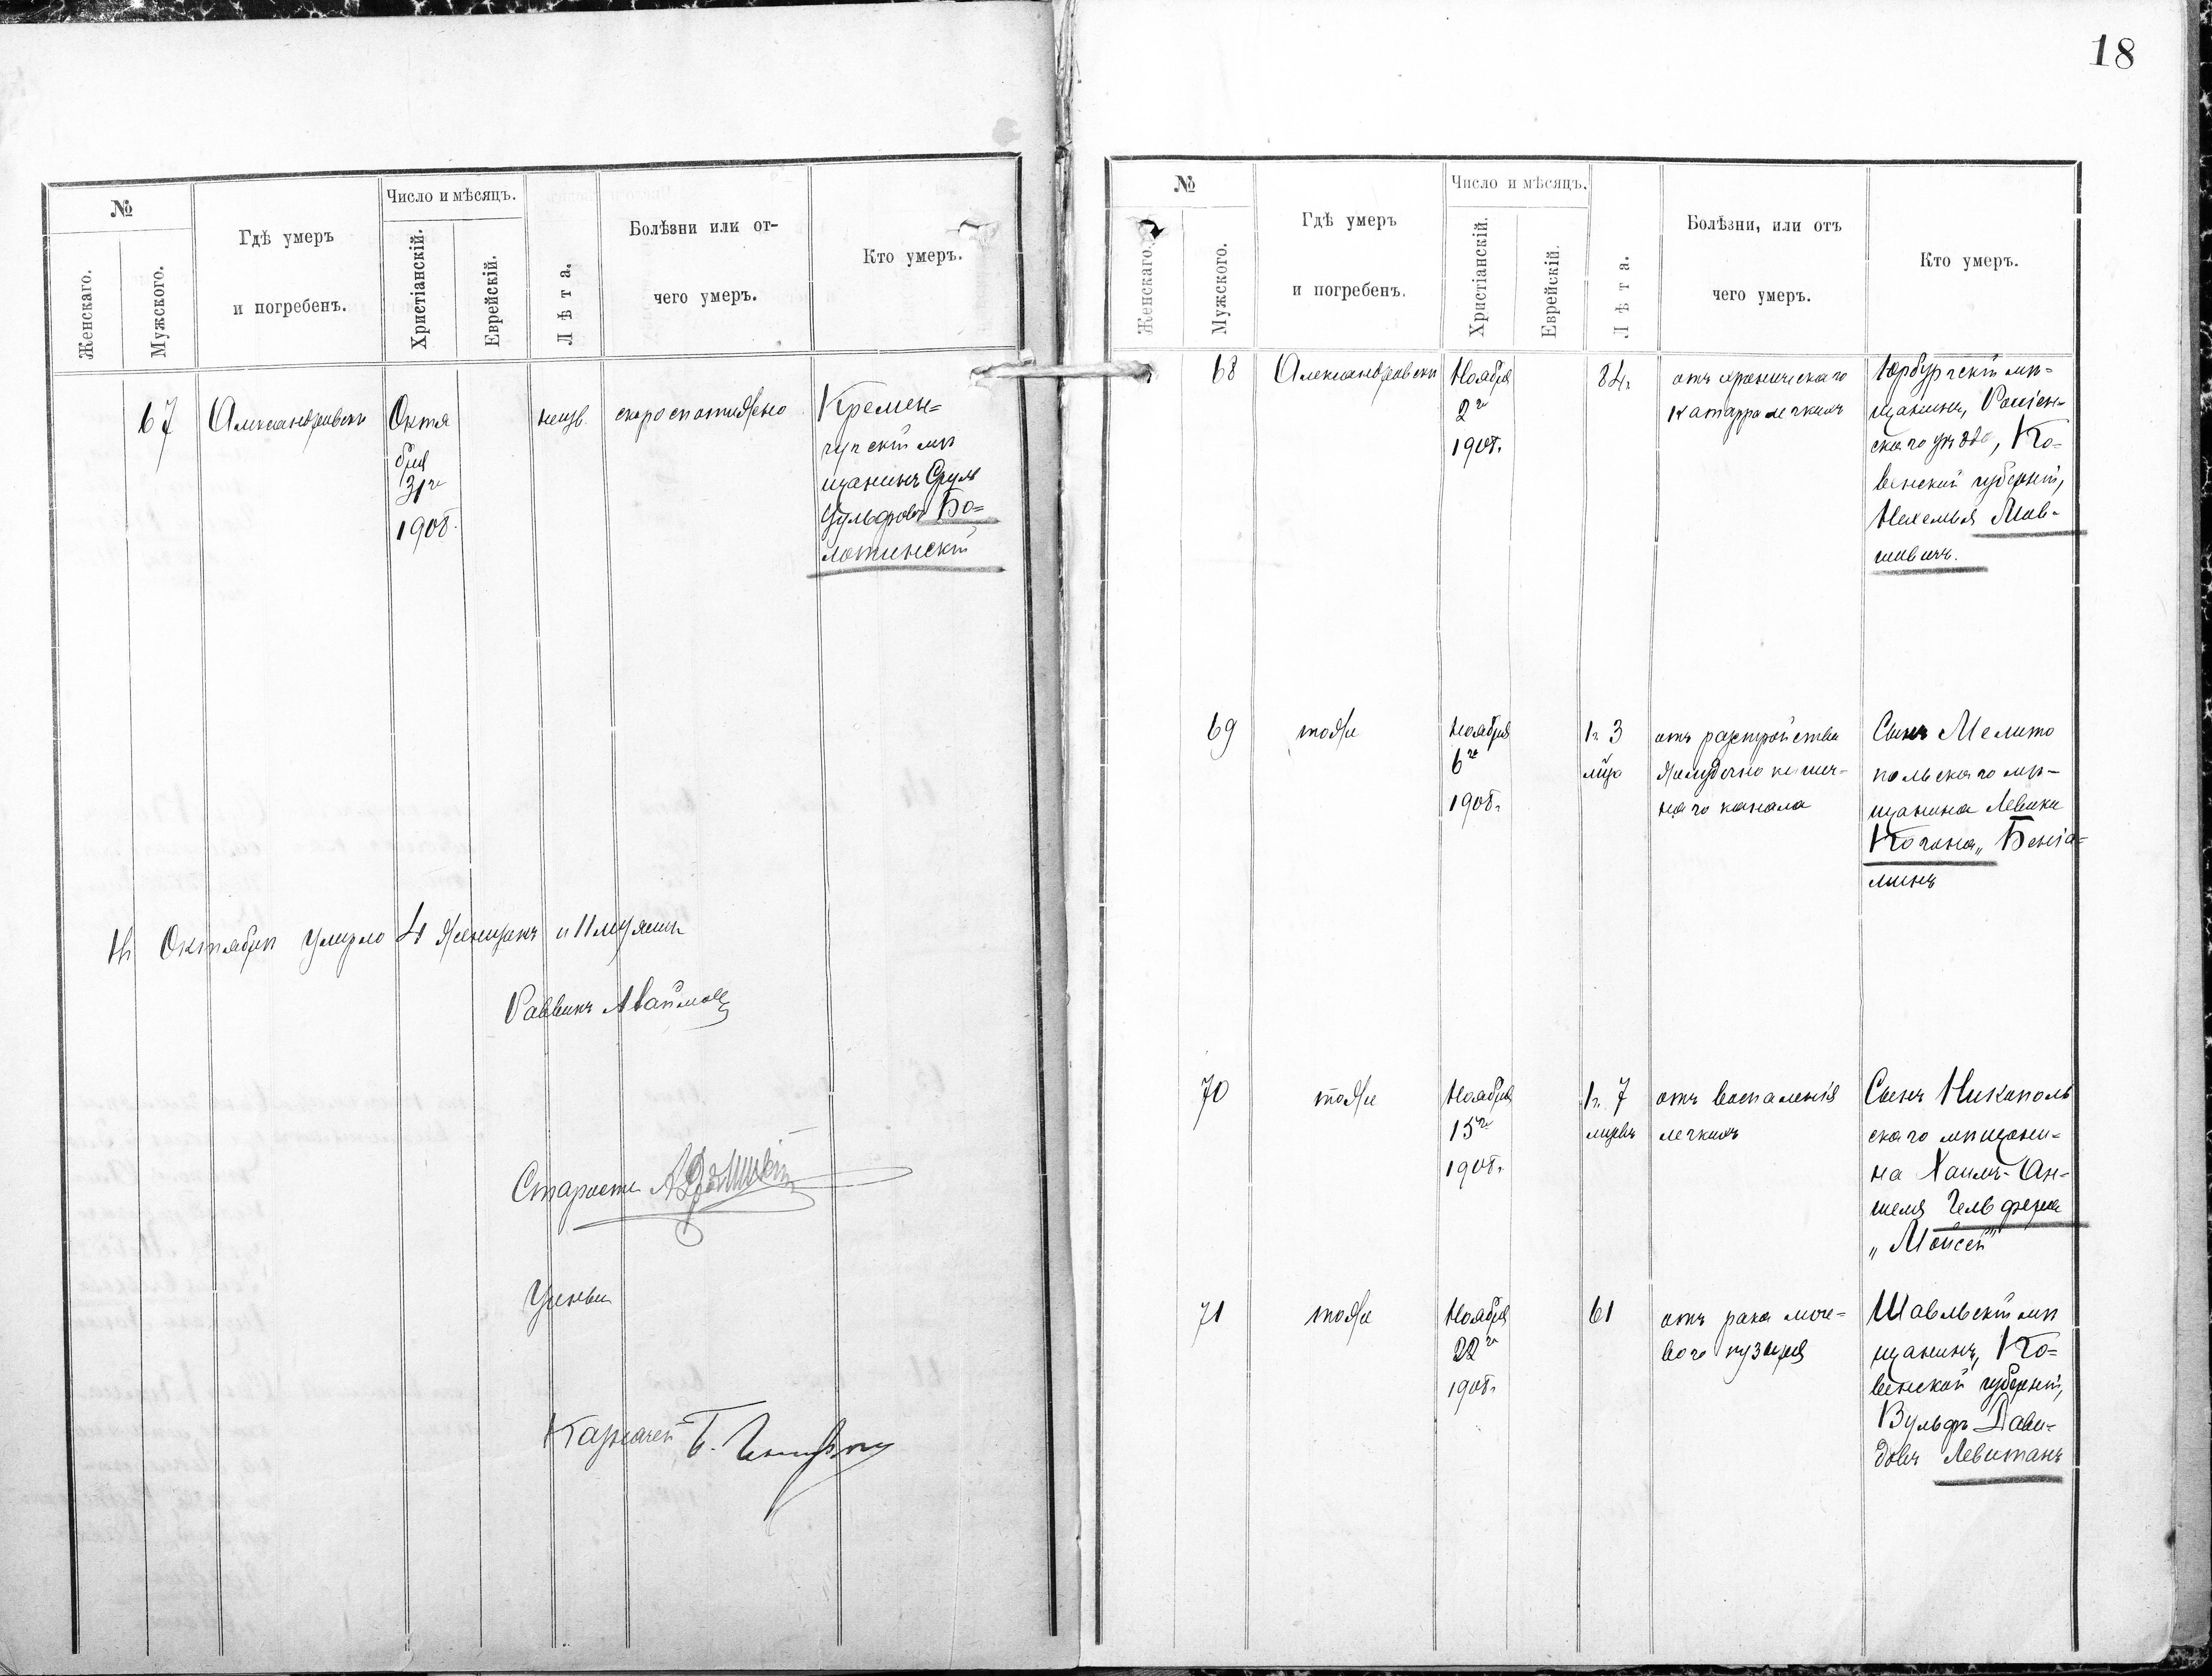 18
№
Женскаго.
Мужского.
Гдѣ умеръ
и погребенъ.
Число и мѣсяцъ.
Христіанскій.
Еврейскій.
Лѣта.
Болѣзни или от-
чего умеръ.
Кто умеръ.
67
Александровскъ
Октя
бря
31го
1908.
неизв.
скоропостижно
Кремен=
чугскій мѣ
щанинъ Сруль
Вульфовъ Бо=
лотинскій
Въ Октябрѣ умерло 4 женщинъ и 11 мужчинъ
Раввинъ
Староста
Ученый
Казначей Б.
№
Женскаго.
Мужского.
Гдѣ умеръ
и погребенъ.
Число и мѣсяцъ.
Христіанскій.
Еврейскій.
Лѣта.
Болѣзни, или отъ
чего умеръ.
Кто умеръ.
68
Александровскъ
Ноября
2го
1908.
84г.
отъ хроническаго
катарра легкихъ
Юрбургскій мѣ=
щанинъ, Россіен-
скаго уѣзда, Ко-
венской губерніи,
Нехемья Мов-
шовичъ.
69
тоже
Ноября
6го
1908г.
1г. 3
мѣс
отъ разстройства
желудочно кишеч-
наго канала
Сынъ Мелито
польскаго мѣ-
щанина Левика
Когана „ Беніа-
минъ
70
тоже
Ноября
15го
1908г.
1г. 7
мѣсяц
отъ воспаленія
легкихъ
Сынъ Никополь
скаго мѣщани-
на Хаимъ-Ан-
шеля Гельфера
„ Мойсей"
71
тоже
Ноября
22го
1908г.
61
отъ рака моче-
вого пузыря
Шавельскій мѣ
щанинъ, Ко=
венской губерніи,
Вульфъ Дави-
довъ Левитанъ